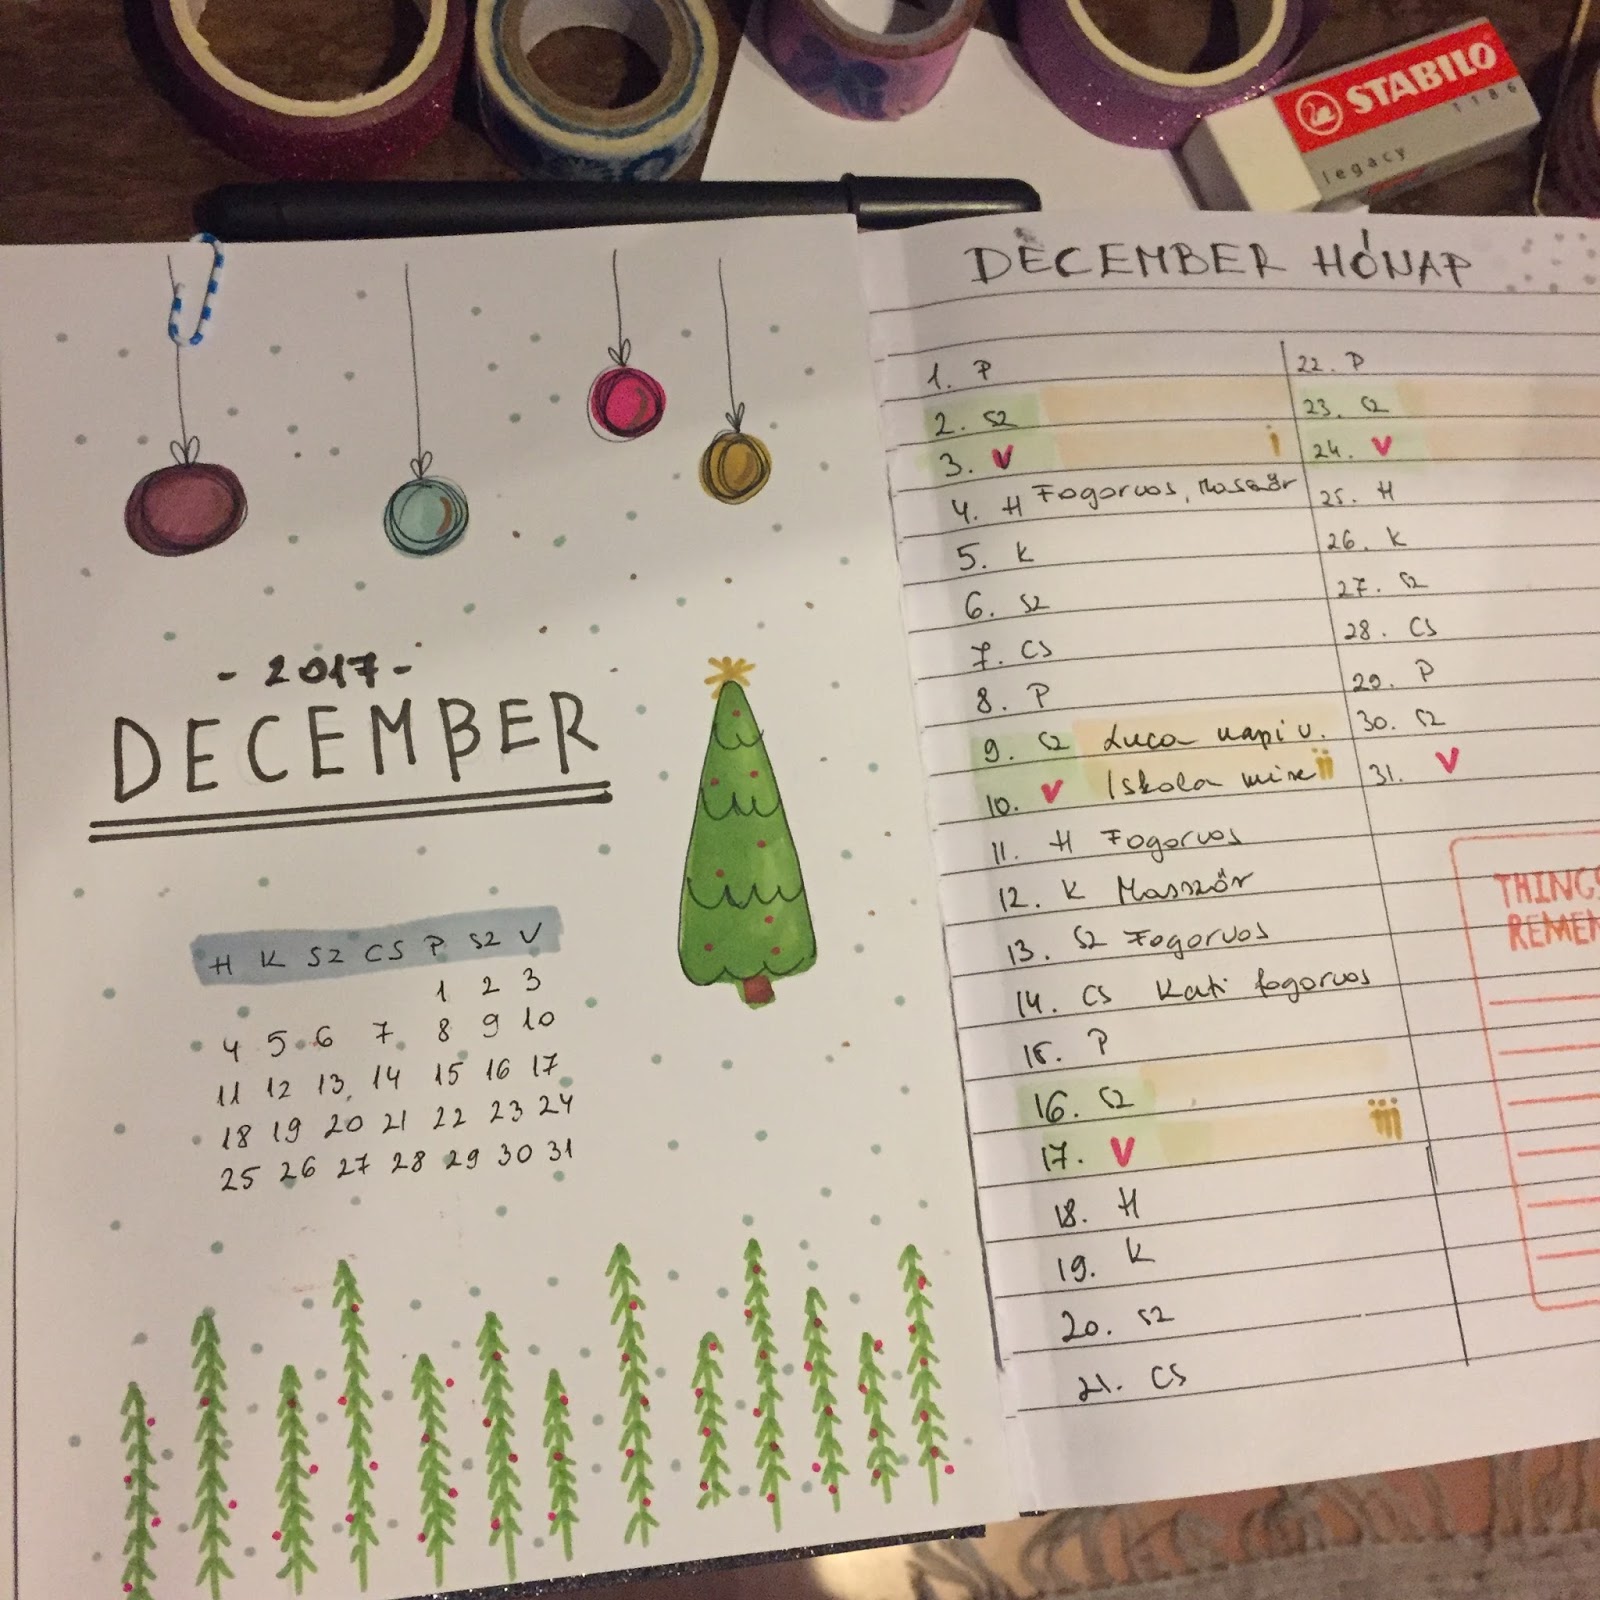 STABILO
1186
legacy
- 2017 -
DECEMBER
H K SZ CS P SZ V
1 2 3
4 5 6 7 8 9 10
11 12 13 14 15 16 17
18 19 20 21 22 23 24
25 26 27 28 29 30 31
DECEMBER HÓNAP
1. P
2. SZ
3. V
4. H Fogorvos, Masszőr
5. K
6. SZ
7. CS
8. P
9. SZ Luca napi v.
10. V Iskola mise
11. H Fogorvos
12. K Masszőr
13. SZ Fogorvos
14. CS Kati fogorvos
15. P
16. SZ
17. V
18. H
19. K
20. SZ
21. CS
22. P
23. SZ
24. V
25. H
26. K
27. SZ
28. CS
29. P
30. SZ
31. V
THINGS
REMEM